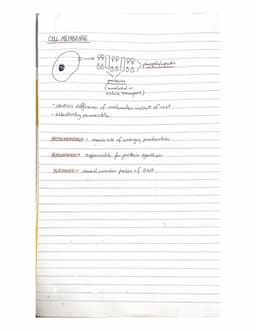 CELL MEMBRANE
phospholipids
proteins
(involved in
active transport)
- controls diffusion of molecules in/out of cell
- selectively permeable
MITOCHONDRIA - main site of energy production
RIBOSOMES - responsible for protein synthesis
PLASMIDS - small circular pieces of DNA